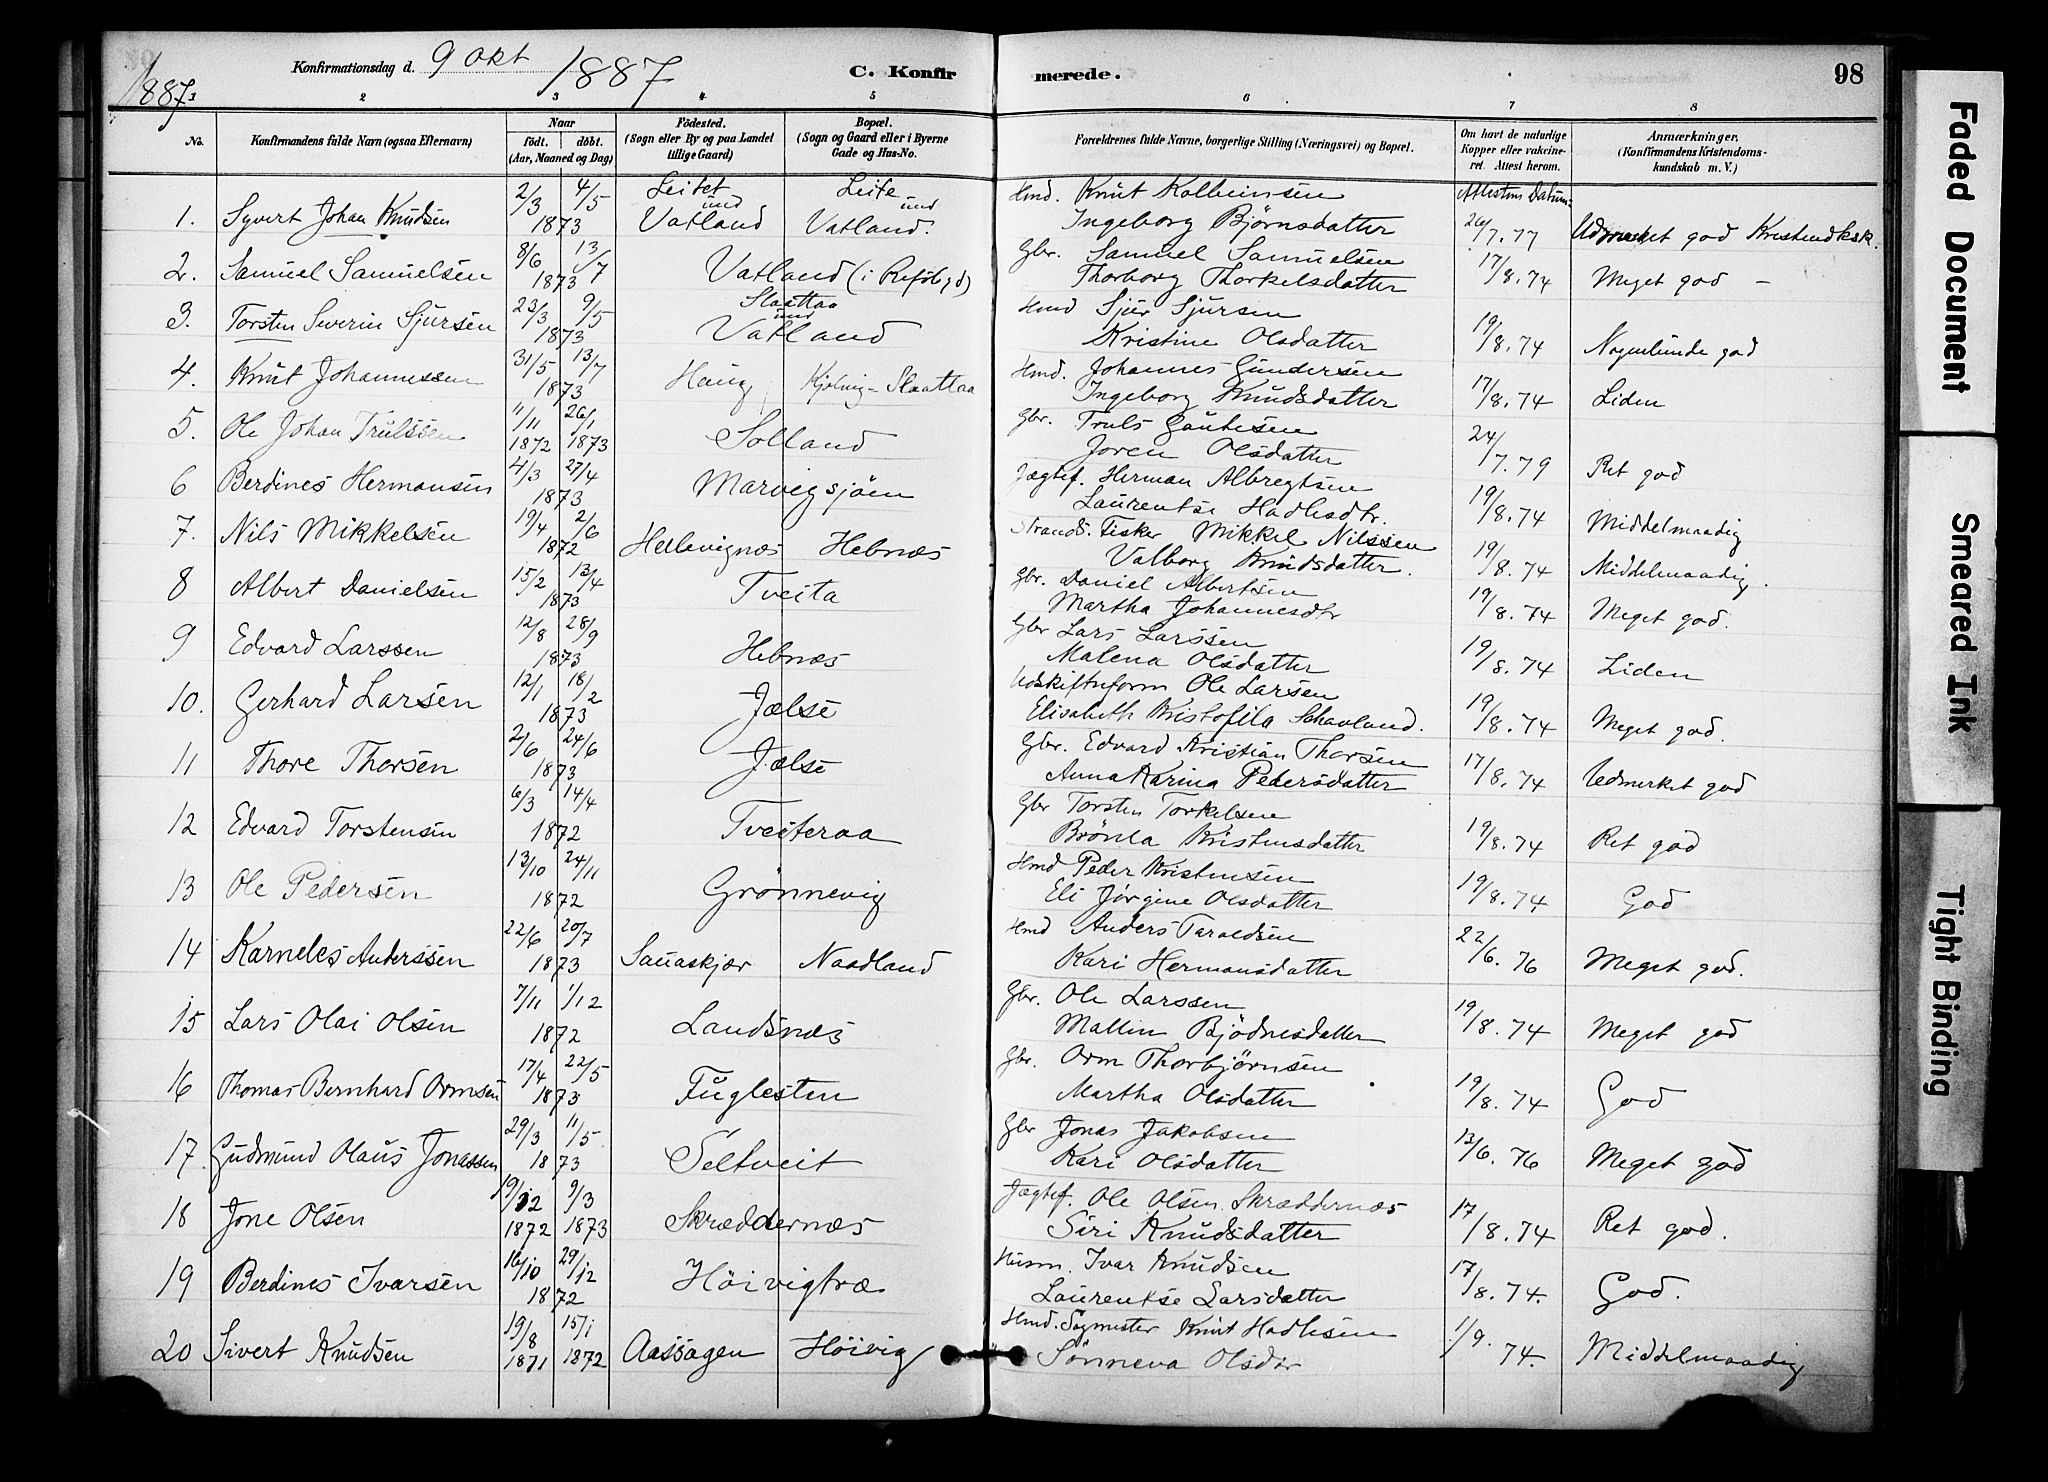 Konfirmationsdag d. 9 okt 1887 C. Konfirmerede. 98
1887
1 2 3 4 5 6 7 8
No. Konfirmandens fulde Navn (ogsaa Efternavn) Naar født. døbt. (Aar, Maaned og Dag) Födested. (Sogn eller By og paa Landet tillige Gaard) Bopæl. (Sogn og Gaard eller i Byerne Gade og Hus-No. Forældrenes fulde Navne, borgerlige Stilling (Næringsvei) og Bopæl. Om havt de naturlige Kopper eller vakcineret. Attest herom. Anmærkninger. (Konfirmandens Kristendomskundskab m. V.)
2/3 4/5 Leitet Leite Hmd. Knut Kolbeinsen Attestens Datum:
1. Syvert Johan Knudsen 1873 und Vatland und Vatland. Ingeborg Bjørnsdatter 26/7. 77 Udmerket god Kristendksk.
8/6 13/7 Gbr. Samuel Samuelsen
2. Samuel Samuelsen 1873 Vatland Thorborg Thorkelsdatter 17/8. 74 Meget god –
23/3 9/5 Slaattaa und Hmd Sjur Sjursen
3. Torsten Severin Sjursen 1873 Vatland Kristine Olsdatter 19/8. 74 Nogenlunde god
31/5 13/7 Hmd. Johannes Gundersen
4. Knut Johannessen 1873 Haug Slaattaa Ingeborg Knudsdatter 17/8. 74 Liden
11/11 26/1 Gbr. Truls Gautesen
5. Ole Johan Trulssen 1872 1873 Solland Joren Olsdatter 24/7. 79 Ret god
4/3 27/4 Jægtef. Herman Albregtsen
6 Berdines Hermansen 1873 Marvigsjøen Laurentse Hadlesdtr. 19/8. 74 Middelmaadig
19/4 2/6 Strands. Fisker Mikkel Nilssen
7. Nils Mikkelsen 1872 Hellevignæs Hebnæs Valborg Knudsdatter. 19/8. 74 Middelmaadig.
15/2 13/4 Gbr. Daniel Albertsen
8 Albert Danielsen 1873 Tveita Martha Johannesdtr 19/8. 74 Meget god.
12/8 28/9 Gbr Lars Larssen
9 Edvard Larssen 1873 Hebnæs Malena Olsdatter 19/8. 74 Liden
12/1 18/2 Udskiftnform Ole Larsen
10. Gerhard Larsen 1873 Jælse Elisabeth Kristofila Schavland. 19/8. 74 Meget god.
2/6 24/6 Gbr. Edvard Kristian Thorsen
11 Thore Thorsen 1873 Jælse Anna Karina Pedersdatter 17/8. 74 Udmerket god
6/3 14/4 Gbr Torsten Torkelsen
12 Edvard Torstensen 1872 Tveiteraa Brönla Kristensdatter 19/8. 74 Ret god
13/10 24/11 Hmd Peder Kristensen
13 Ole Pedersen 1872 Grönnevig Eli Jørgine Olsdatter 19/8. 74 God
22/6 20/7 Hmd Anders Taraldsen
14 Karneles Anderssen 1873 Sauaskjær Naadland Kari Hermansdatter 22/6. 76 Meget god.
7/11 1/12 Gbr. Ole Larssen
15 Lars Olai Olsen 1872 Landsnæs Mallin Bjödnesdatter 19/8. 74 Meget god
17/4 22/5 Gbr. Orm Thorbjørnsen
16 Thomas Bernhard Ormsen 1873 Fuglesten Martha Olsdatter 19/8. 74 God
29/3 11/5. Gbr Jonas Jakobsen
17. Gudmund Olaus Jonassen 1873 Seltveit Kari Olsdatter 13/6. 76 Meget god
19/12 9/3 Jægtef. Ole Olsen Skræddernæs
18 Jone Olsen 1872 1873 Skræddernæs Siri Knudsdatter 17/8. 74 Ret god.
16/10 29/12 Husm. Ivar Knudsen
19 Berdines Ivarsen 1872 Höivigtræ Laurentse Larsdatter 17/8. 74. God.
19/8 15/1 Hmd. Sagmester Knut Hadlesen
20 Sivert Knudsen 1871 1872 Aassagen Höivig Sönneva Olsdtr 1/9. 74. Middelmaadig
Faded Document
Smeared Ink
Tight Binding